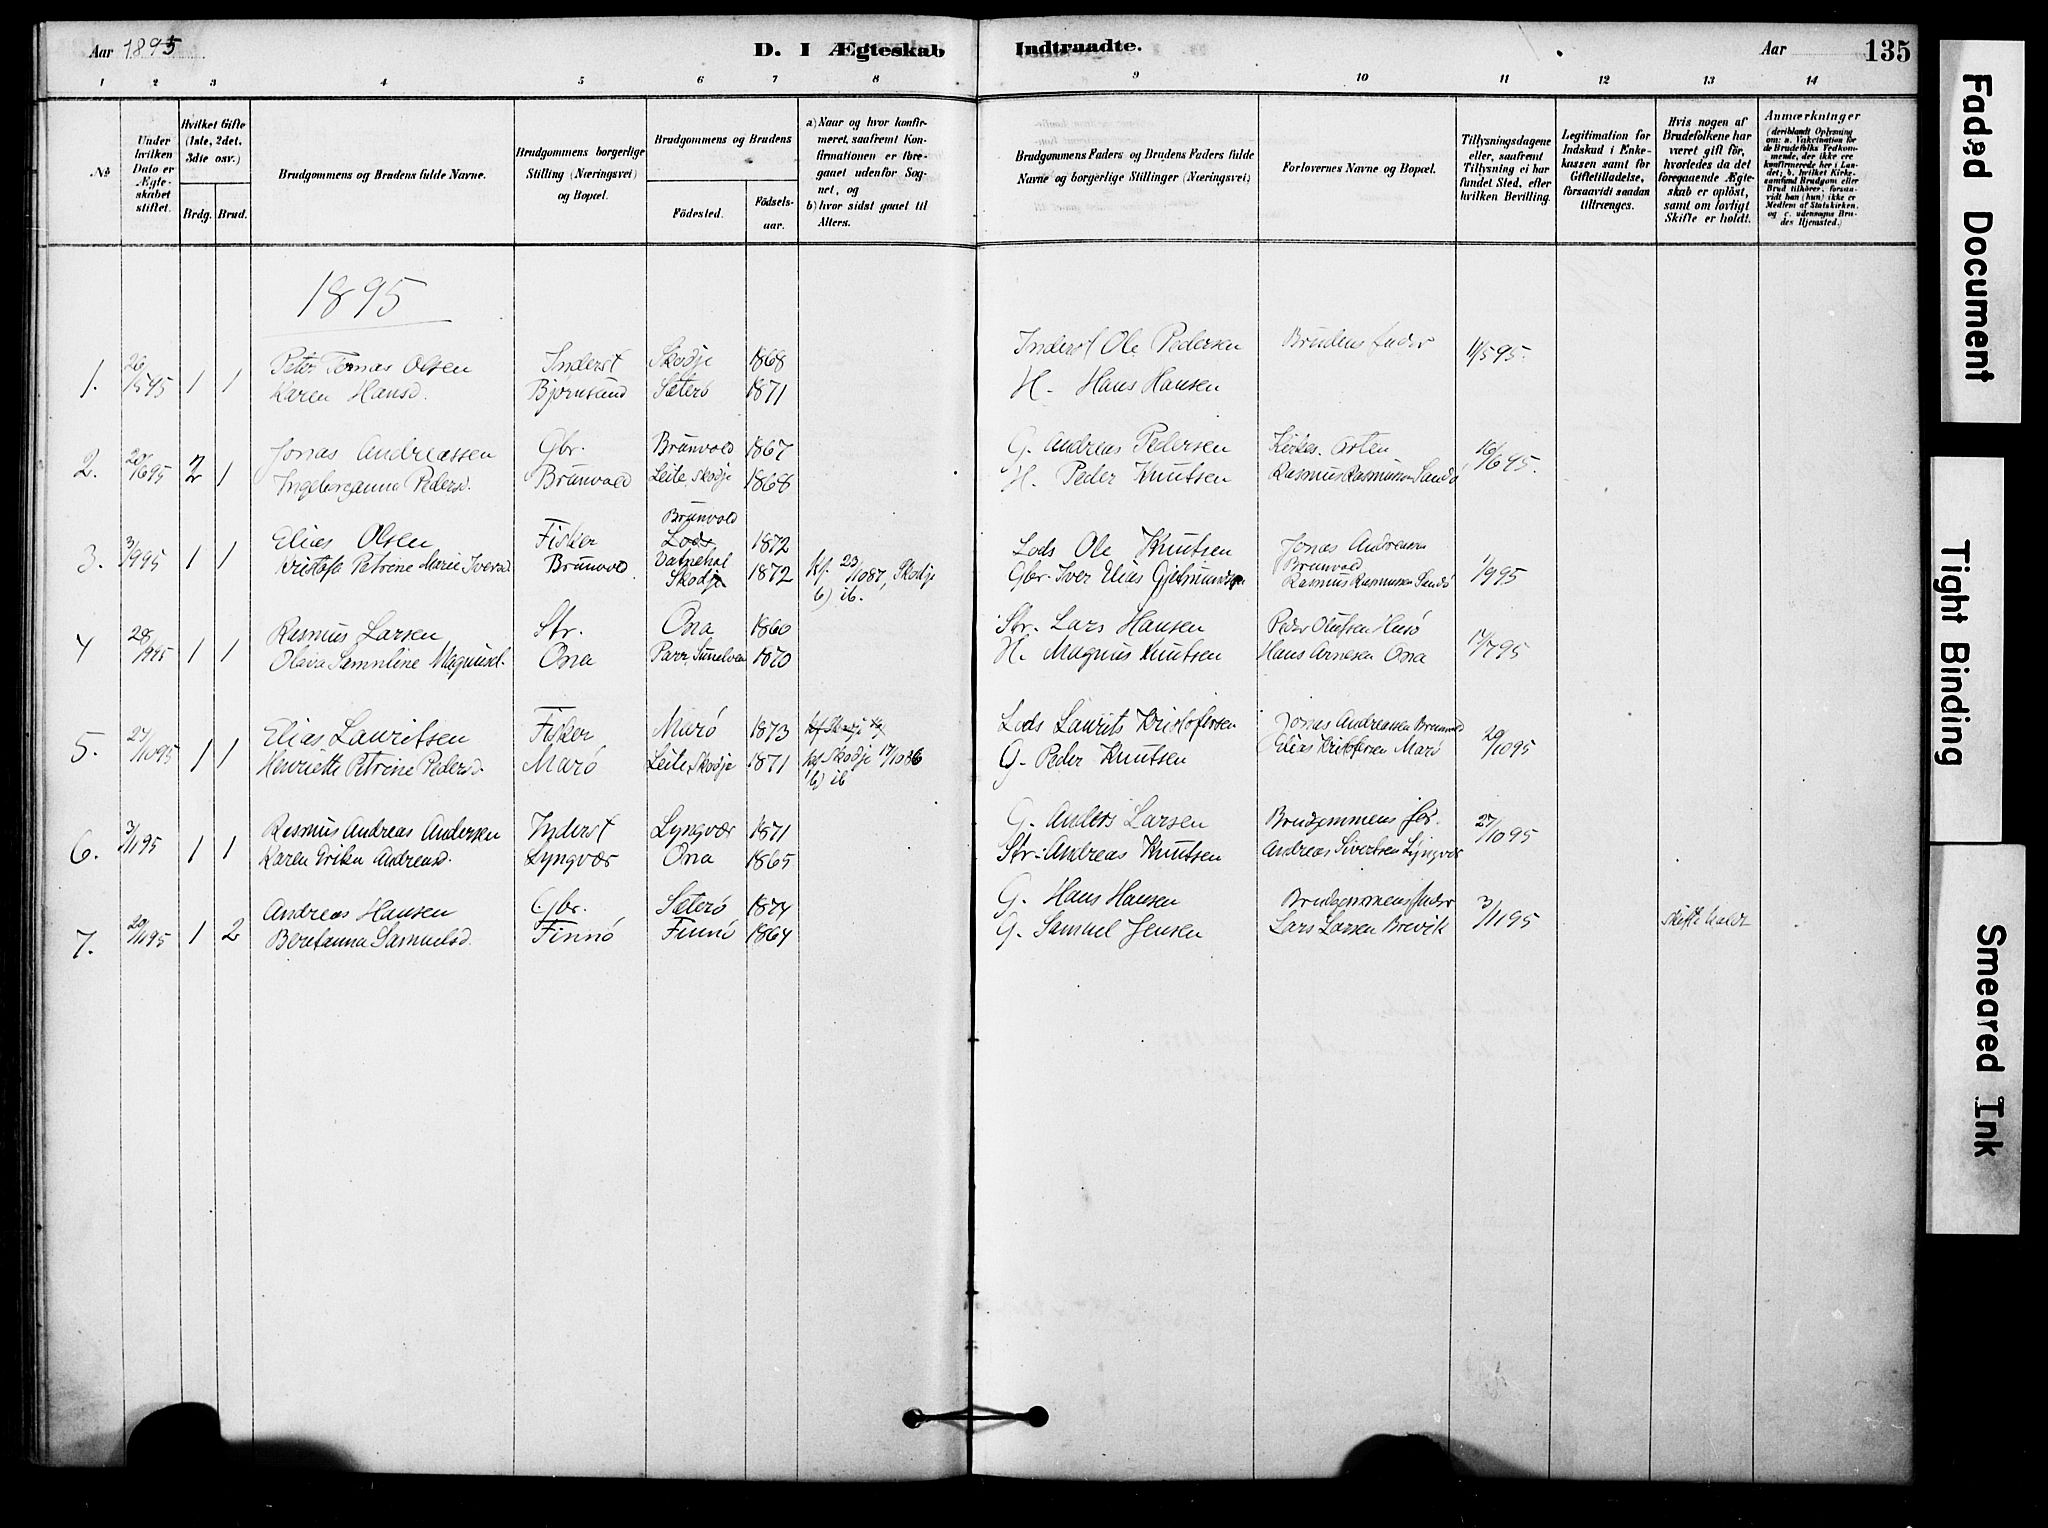 Aar 1895
D. I Ægteskab Indtraadte.
Aar
135
1 2 3 4 5 6 7 8 9 10 11 12 13 14
No
Under hvilken Dato er Ægteskabet stiftet.
Hvilket Gifte (1ste, 2det, 3die osv.)
Brdg. Brud.
Brudgommens og Brudens fulde Navne.
Brudgommens borgerlige Stilling (Næringsvei) og Bopæl.
Brudgommens og Brudens
Födested. Födselsaar.
a) Naar og hvor konfirmeret, saafremt Konfirmationen er foregaaet udenfor Sognet, og
b) hvor sidst gaaet til Alters.
Brudgommens Faders og Brudens Faders fulde Navne og borgerlige Stillinger (Næringsvei)
Forlovernes Navne og Bopæl.
Tillysningsdagene eller, saafremt Tillysning ei har fundet Sted, efter hvilken Bevilling.
Legitimation for Indskud i Enkekassen samt for Giftetilladelse, forsaavidt saadan tiltrænges.
Hvis nogen af Brudefolkene har været gift før, hvorledes da det foregaaende Ægteskab er oplöst, samt om lovligt Skifte er holdt.
Anmærkninger
(deriblandt Oplysning om: a. Vakcination for de Brudefolks Vedkommende, der ikke ere konfirmerede her i Landet; b. hvilket Kirkesamfund Brudgom eller Brud tilhörer, forsaavidt han (hun) ikke er Medlem af Statskirken, og c. udensogns Brudes Hjemsted.)
1895
1. 26/5 95 1 1 Peter Tomas Olsen Inderst Skodje 1868 Inderst Ole Pedersen Brudens 1/5 95.
Karen Hansd. Bjørnsund Sæterö 1871 H. Hans Hansen
2. 20/6 95 2 1 Jonas Andreassen Gbr. Brunvold 1867 G. Andreas Pedersen Kirkes. Osten 16/6 95.
Ingeborganna Pedersd. Brunvold Leite Skodje 1868 H. Peder Knutsen Rasmus Rasmussen Sandö
Brunvold
3. 3/9 95 1 1 Elias Olsen Fisker Lods 1872 Lods Ole Knutsen Jonas Andreasen Brunvold 1/9 95
Petrine Marie Iversd. Brunvold Vatnehol Skodje 1872 kf. 23/10 87, Skodje Gbr. Iver Elias Gjelmundsen Rasmus Rasmussen Sandö
b) ib.
4 28/9 95 1 1 Rasmus Larsen Str. Ona 1860 Str. Lars Hansen Peder Olufsen Husö 14/7 95
Olava Magnusd. Ona Parr. Sunelven 1870 H. Magnus Knutsen Hans Arnesen Ona
5. 27/10 95 1 1 Elias Lauritsen Fisker Marö 1873 kf Skodje Lods Laurits Kristofersen Jonas Andreassen Brunvold 20/10 95
Henriette Petrine Pedersd. Marö Leite, Skodje 1871 kf Skodje 17/10 86 G. Peder Knutsen Elias Kristofersen Marö
b) ib
6. 3/11 95 1 1 Rasmus Andreas Andersen Inderst Lyngvær 1871 G. Anders Larsen Brudgommens far. 27/10 95
Karen Erika Andreasd. Lyngvær Ona 1865 Str. Andreas Knutsen Andreas Sivertsen Lyngvær
7. 20/11 95 1 2 Andreas Hansen Gbr. Sæterö 1874 G. Hans Hansen Brudgommens 3/11 95 Skifte holdt
Beretanna Samuelsd. Finnö Finnö 1864 G. Samuel Jensen Lars Larsen Brevik
Faded Document
Tight Binding
Smeared Ink